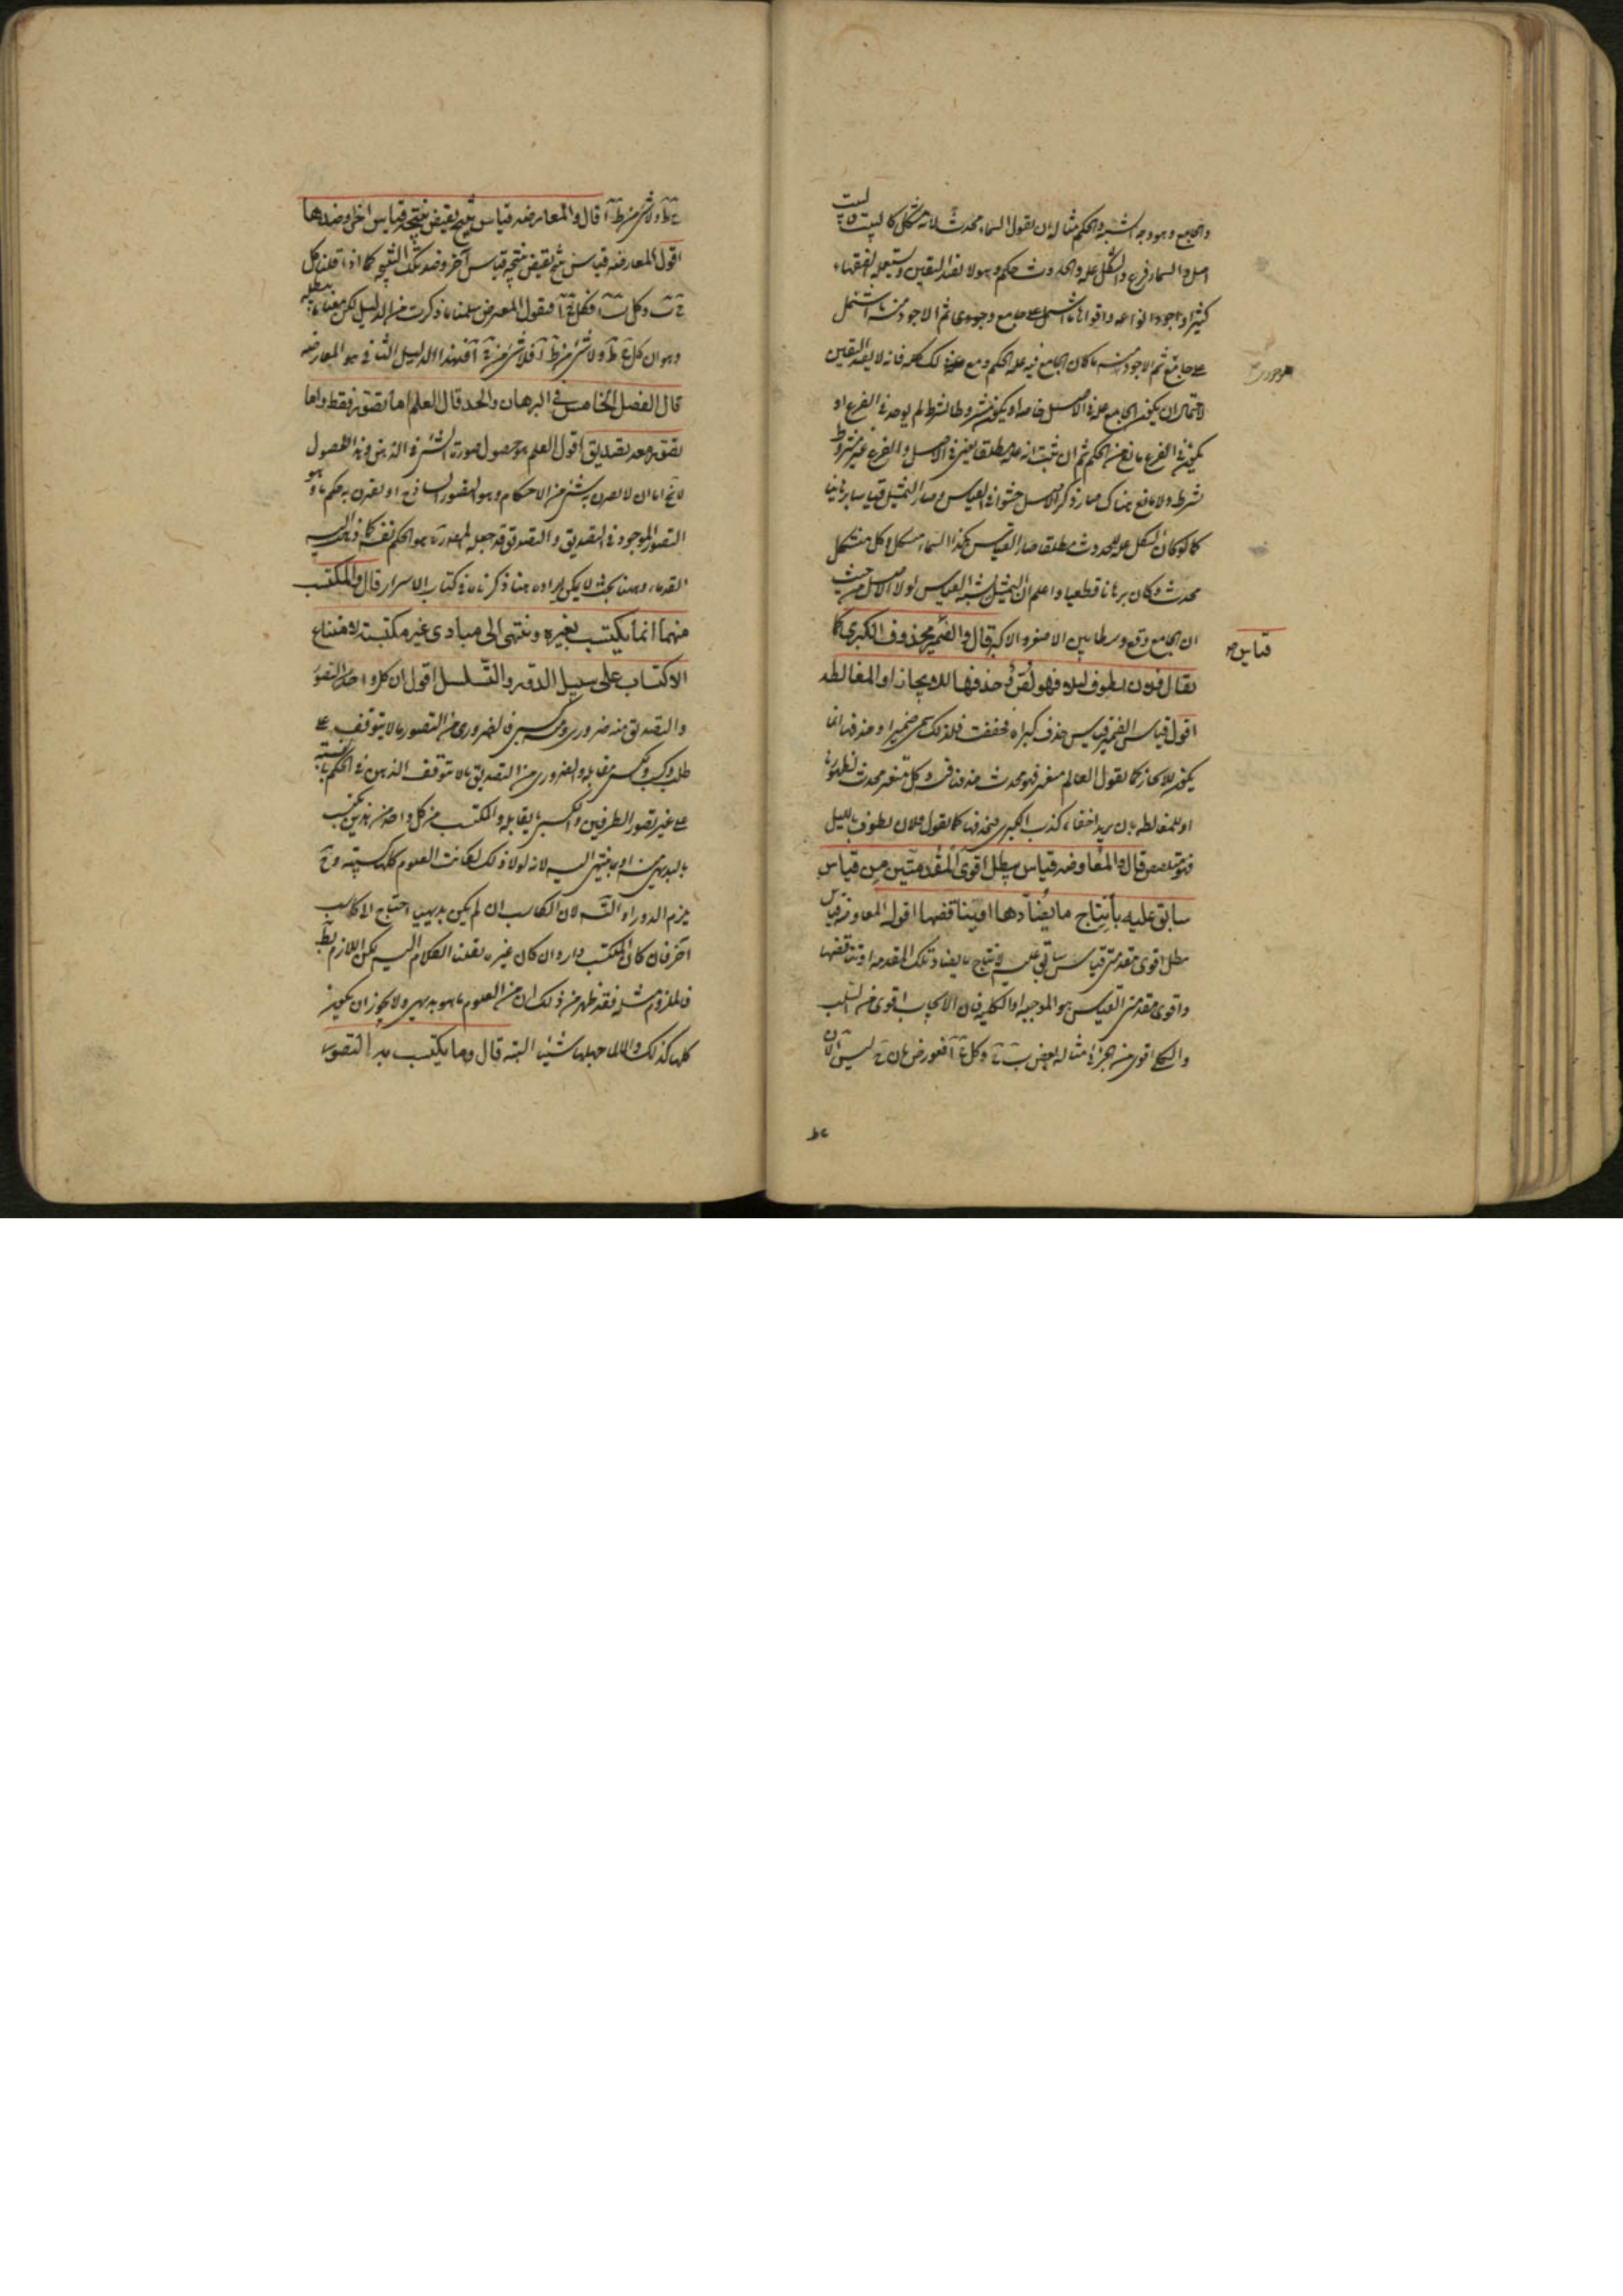 والجامع وهو وجه الشبه والحكم مثاله ان نقول السماء محدث لانه متشكل كالبيت فالبيت
اصل والسماء فرع والشكل علة والحدوث حكم وهو لا يفيد اليقين ويستعمله الفقهاء
كثيرا واجود انواعه واقواها ما اشتمل على جامع وجودى ثم الاجود منه ما اشتمل
على جامع ثم الاجود منه ما كان الجامع فيه علة الحكم ومع ذلك كله فانه لا يفيد اليقين
لاحتمال ان يكون الجامع علة فى الاصل خاصة او يكون مشروطا بشرط لم يوجد فى الفرع او
يكون فى الفرع مانع من الحكم ثم ان ثبت انه علة مطلقا يعنى فى الاصل والفرع غير مشروط
بشرط ولا مانع هناك صار ذكر الاصل حشوا فى القياس وصار التمثيل قياسا برهانيا
كما لو كان الشكل علة للحدوث مطلقا صار القياس هكذا السماء متشكل وكل متشكل
محدث وكان برهانا قطعيا واعلم ان التمثيل يشبه القياس لولا الاصل من حيث
ان الجامع وقع وسطا بين الاصغر والاكبر قال والضمير محذوف الكبرى كما
قياس ص
يقال فلان يطوف ليلا فهو لص حذفها للايجاز او المغالطة
اقول قياس الضمير قياس حذف كبراه فخففت فلذلك سمى ضميرا وحذفها انما
يكون للايجاز كما نقول العالم متغير فهو محدث حذفنا فيه وكل متغير محدث لظهورها
او للمغالطة بان يريد اخفاء كذب الكبرى فيحذفها كما نقول فلان يطوف بالليل
فهو متلصص قال والمقاومة قياس يبطل اقوى المقدمتين من قياس
سابق عليه بانتاج ما يضادها او يناقضها اقول المقاومة قياس
يبطل اقوى مقدمتى قياس سابق عليه لانتاج ما يضاد تلك المقدمة او يناقضها
واقوى مقدمتى القياس هو الموجبة او الكلية فان الايجاب اقوى من السلب
والكلى اقوى من الجزئى مثاله بعض
قال والمعارضة قياس ينتج نقيض نتيجة قياس اخر او ضدها
اقول المعارضة قياس ينتج نقيض نتيجة قياس آخر او ضد تلك النتيجة كما اذا قلنا كل
فيقول المعترض سلمنا ما ذكرت من الدليل لكن معنا ما يبطله
فهذا الدليل الثانى هو المعارضة
قال الفصل الخامس فى البرهان والحد قال العلم اما تصور فقط واما
تصور معه تصديق اقول العلم هو حصول صورة الشئ فى الذهن وهذا الحصول
لا يخ اما ان لا يقترن به شئ من الاحكام وهو التصور الساذج او يقترن به حكم ما وهو
التصور الموجود فى التصديق والتصديق قد جعله المصنف هو الحكم نفسه كما ذهب اليه
القدماء وههنا بحث لا يمكن ايراده هنا ذكرناه فى كتاب الاسرار قال والمكتسب
منهما انما يكتسب بغيره وينتهى الى مبادى غير مكتسبة لامتناع
الاكتساب على سبيل الدور والتسلسل اقول ان كل واحد من التصور
والتصديق منه ضرورى ومنه كسبى فالضرورى من التصور ما لا يتوقف على
طلب وكسب والكسبى مقابله والضرورى من التصديق ما لا يتوقف الذهن فى الحكم بالنسبة
على غير تصور الطرفين والكسبى ما يقابله والمكتسب من كل واحد من هذين يكتسب
بالبديهى منه او بما ينتهى اليه لانه لولا ذلك لكانت العلوم كلها كسبية وح
يلزم الدور او التسلسل لان الكاسب ان لم يكن بديهيا احتاج الى كاسب
آخر فان كان المكتسب دار وان كان غيره نقلنا الكلام اليه لكن اللازم بط
فالملزوم مثله فقد ظهر من ذلك ان من العلوم ما هو بديهى ولا يجوز ان يكون
كلها كذلك والا لما جهلنا شيئا البتة قال وما يكتسب به التصور